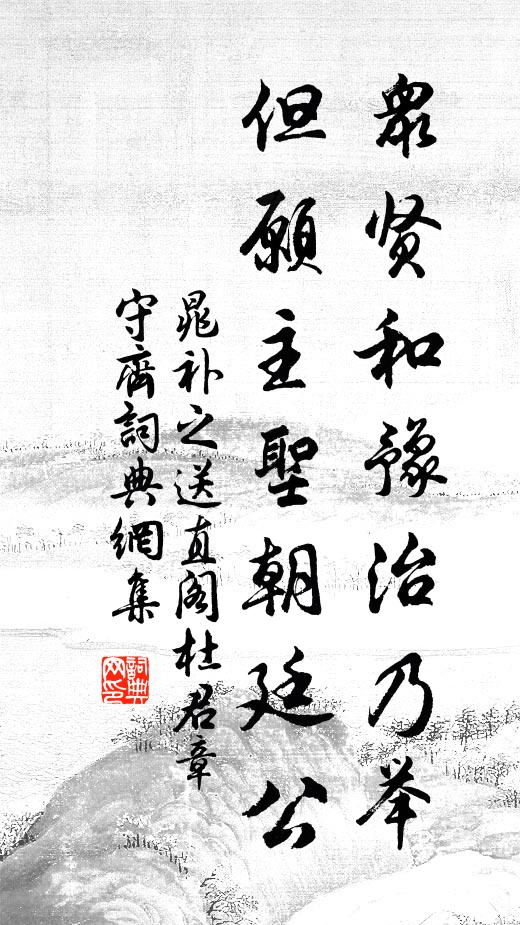 眾贤和豫治乃举
但愿主聖朝廷公
晁补之送直阁杜君章
守齋詞典網集
詞典網印